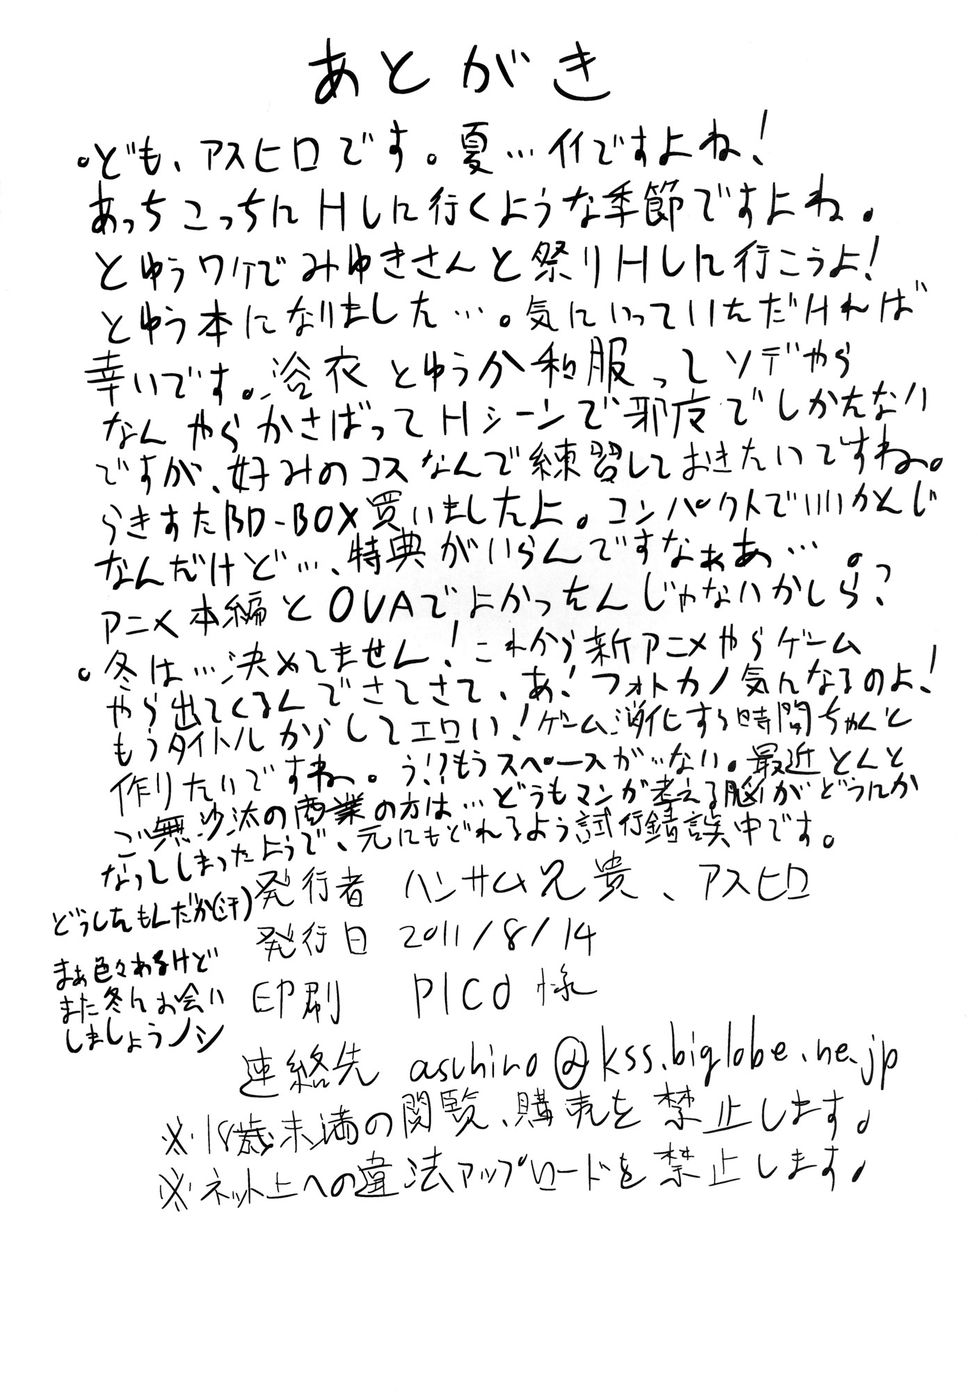 あとがき
。ども、アスヒロです。夏…イイですよね!
あっちこっちにHしに行くような季節ですよね。
とゆうワケでみゆきさんと祭りHしに行こうよ!
とゆう本になりました…。気にいっていただければ
幸いです。浴衣とゆうか和服ってソデやら
なんやらかさばってHシーンで邪皮でしかたない
ですが、好みのコスなんで練習しておきたいですね。
らきすたBD-BOX買いましたよ。コンパクトでいいかんじ
なんだけど…、特典がいらんですなぁあ…。
アニメ本編とOVAでよかったんじゃないかしら?
。冬は…決めてません!これから新アニメやらゲーム
やら出てくるんでさてさて、あ!フォトカノ気になるのよ!
もうタイトルからしてエロい!ゲーム消化する時間ちゃんと
作りたいですね。う!?もうスペースが…ない。最近とんと
ご無沙汰の商業の方は…どうもマンが考える脳がどうにか
なってしまったようで、元にもどれるよう試行錯誤中です。
どうしたもんだか(汗)
まぁ色々あるけど
また冬にお会い
しましょうノシ
発行者 ハンサム兄貴、アスヒロ
発行日 2011/8/14
印刷 PICO様
連絡先 asuhiro@kss.biglobe.ne.jp
※18歳未満の閲覧、購売を禁止します。
※ネット上への違法アップロードを禁止します。